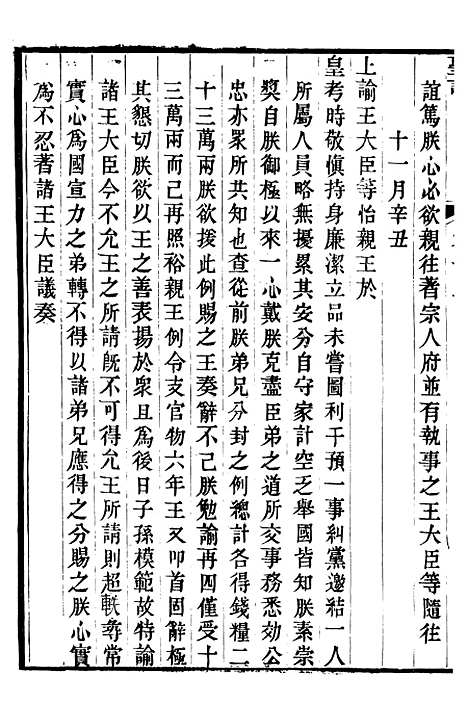 誼篤朕心必欲親往著宗人府並有執事之王大臣等隨往
十一月辛丑
上諭王大臣等怡親王於
皇考時敬慎持身廉潔立品未嘗圖利干預一事糾黨邀結一人
所屬人員略無擾累其安分自守家計空乏舉國皆知朕素崇
獎自朕御極以來一心戴朕克盡臣弟之道所交事務悉効公
忠亦衆所知也查從前朕弟兄分封之例總計各得錢糧二
十三萬兩朕欲援此例賜之王奏辭不已朕勉諭再四僅受十
三萬兩而已再照裕親王例令支官物六年王又叩首固辭極
其懇切朕欲以王之善表揚於衆且為後日子孫模範故特諭
諸王大臣今不允王之所請旣不可得允王所請則超軼尋常
實心為國宣力之弟轉不得以諸弟兄應得之分賜之朕心實
為不忍著諸王大臣議奏